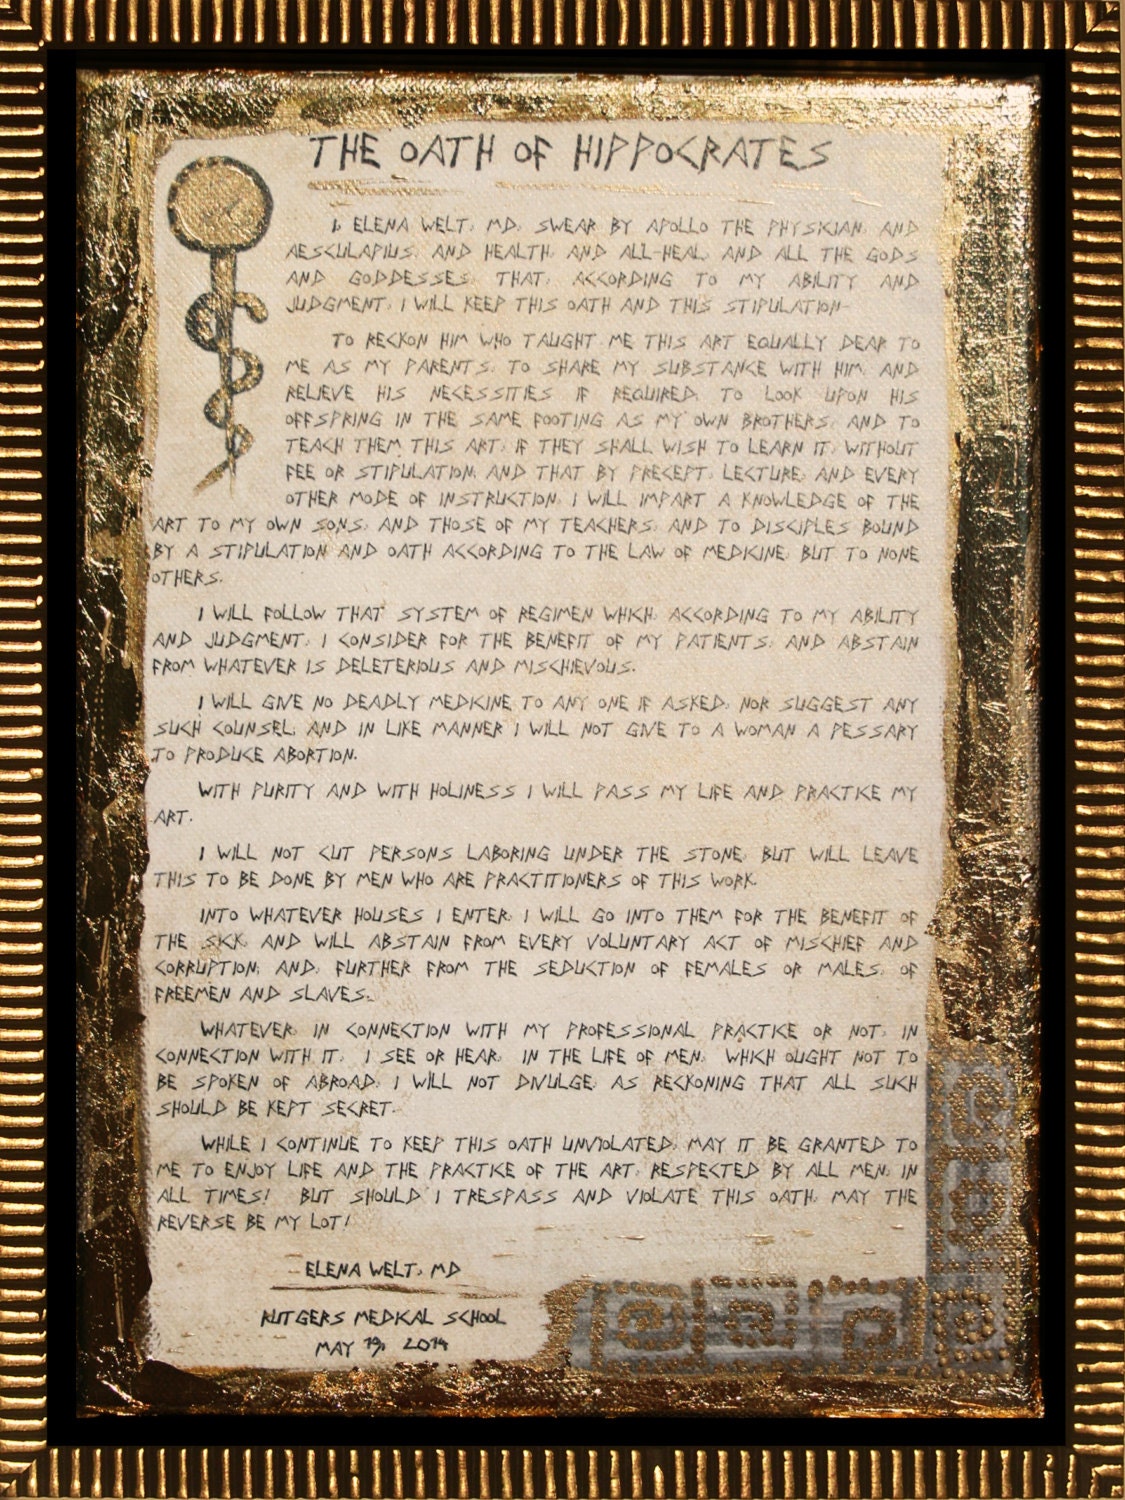 THE OATH OF HIPPOCRATES
I, ELENA WELT, MD, SWEAR BY APOLLO THE PHYSICIAN, AND
AESCULAPIUS, AND HEALTH, AND ALL-HEAL, AND ALL THE GODS
AND GODDESSES, THAT, ACCORDING TO MY ABILITY AND
JUDGMENT, I WILL KEEP THIS OATH AND THIS STIPULATION-
TO RECKON HIM WHO TAUGHT ME THIS ART EQUALLY DEAR TO
ME AS MY PARENTS, TO SHARE MY SUBSTANCE WITH HIM, AND
RELIEVE HIS NECESSITIES IF REQUIRED; TO LOOK UPON HIS
OFFSPRING IN THE SAME FOOTING AS MY OWN BROTHERS, AND TO
TEACH THEM THIS ART, IF THEY SHALL WISH TO LEARN IT, WITHOUT
FEE OR STIPULATION; AND THAT BY PRECEPT, LECTURE, AND EVERY
OTHER MODE OF INSTRUCTION, I WILL IMPART A KNOWLEDGE OF THE
ART TO MY OWN SONS, AND THOSE OF MY TEACHERS, AND TO DISCIPLES BOUND
BY A STIPULATION AND OATH ACCORDING TO THE LAW OF MEDICINE, BUT TO NONE
OTHERS.
I WILL FOLLOW THAT SYSTEM OF REGIMEN WHICH, ACCORDING TO MY ABILITY
AND JUDGMENT, I CONSIDER FOR THE BENEFIT OF MY PATIENTS, AND ABSTAIN
FROM WHATEVER IS DELETERIOUS AND MISCHIEVOUS.
I WILL GIVE NO DEADLY MEDICINE TO ANY ONE IF ASKED, NOR SUGGEST ANY
SUCH COUNSEL; AND IN LIKE MANNER I WILL NOT GIVE TO A WOMAN A PESSARY
TO PRODUCE ABORTION.
WITH PURITY AND WITH HOLINESS I WILL PASS MY LIFE AND PRACTICE MY
ART.
I WILL NOT CUT PERSONS LABORING UNDER THE STONE, BUT WILL LEAVE
THIS TO BE DONE BY MEN WHO ARE PRACTITIONERS OF THIS WORK.
INTO WHATEVER HOUSES I ENTER, I WILL GO INTO THEM FOR THE BENEFIT OF
THE SICK, AND WILL ABSTAIN FROM EVERY VOLUNTARY ACT OF MISCHIEF AND
CORRUPTION; AND, FURTHER FROM THE SEDUCTION OF FEMALES OR MALES, OF
FREEMEN AND SLAVES.
WHATEVER, IN CONNECTION WITH MY PROFESSIONAL PRACTICE OR NOT, IN
CONNECTION WITH IT, I SEE OR HEAR, IN THE LIFE OF MEN, WHICH OUGHT NOT TO
BE SPOKEN OF ABROAD, I WILL NOT DIVULGE, AS RECKONING THAT ALL SUCH
SHOULD BE KEPT SECRET.
WHILE I CONTINUE TO KEEP THIS OATH UNVIOLATED, MAY IT BE GRANTED TO
ME TO ENJOY LIFE AND THE PRACTICE OF THE ART, RESPECTED BY ALL MEN, IN
ALL TIMES! BUT SHOULD I TRESPASS AND VIOLATE THIS OATH, MAY THE
REVERSE BE MY LOT!
ELENA WELT, MD
RUTGERS MEDICAL SCHOOL
MAY 19, 2014